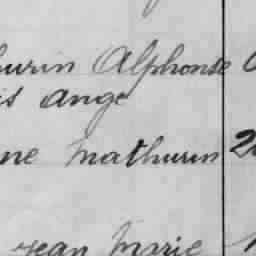 urin Alphonse
is Ange
ne Mathurin 2
Jean Marie